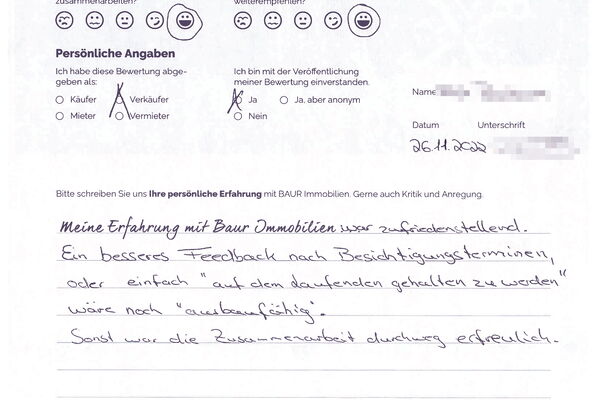 zusammenarbeiten?
weiterempfehlen?
Persönliche Angaben
Ich habe diese Bewertung abge-
geben als:
Käufer Verkäufer
Mieter Vermieter
Ich bin mit der Veröffentlichung
meiner Bewertung einverstanden.
Ja Ja, aber anonym
Nein
Name
Datum Unterschrift
26.11.2022
Bitte schreiben Sie uns Ihre persönliche Erfahrung mit BAUR Immobilien. Gerne auch Kritik und Anregung.
Meine Erfahrung mit Baur Immobilien war zufriedenstellend.
Ein besseres Feedback nach Besichtigungsterminen,
oder einfach "auf dem laufenden gehalten zu werden"
wäre noch "ausbaufähig".
Sonst war die Zusammenarbeit durchweg erfreulich.